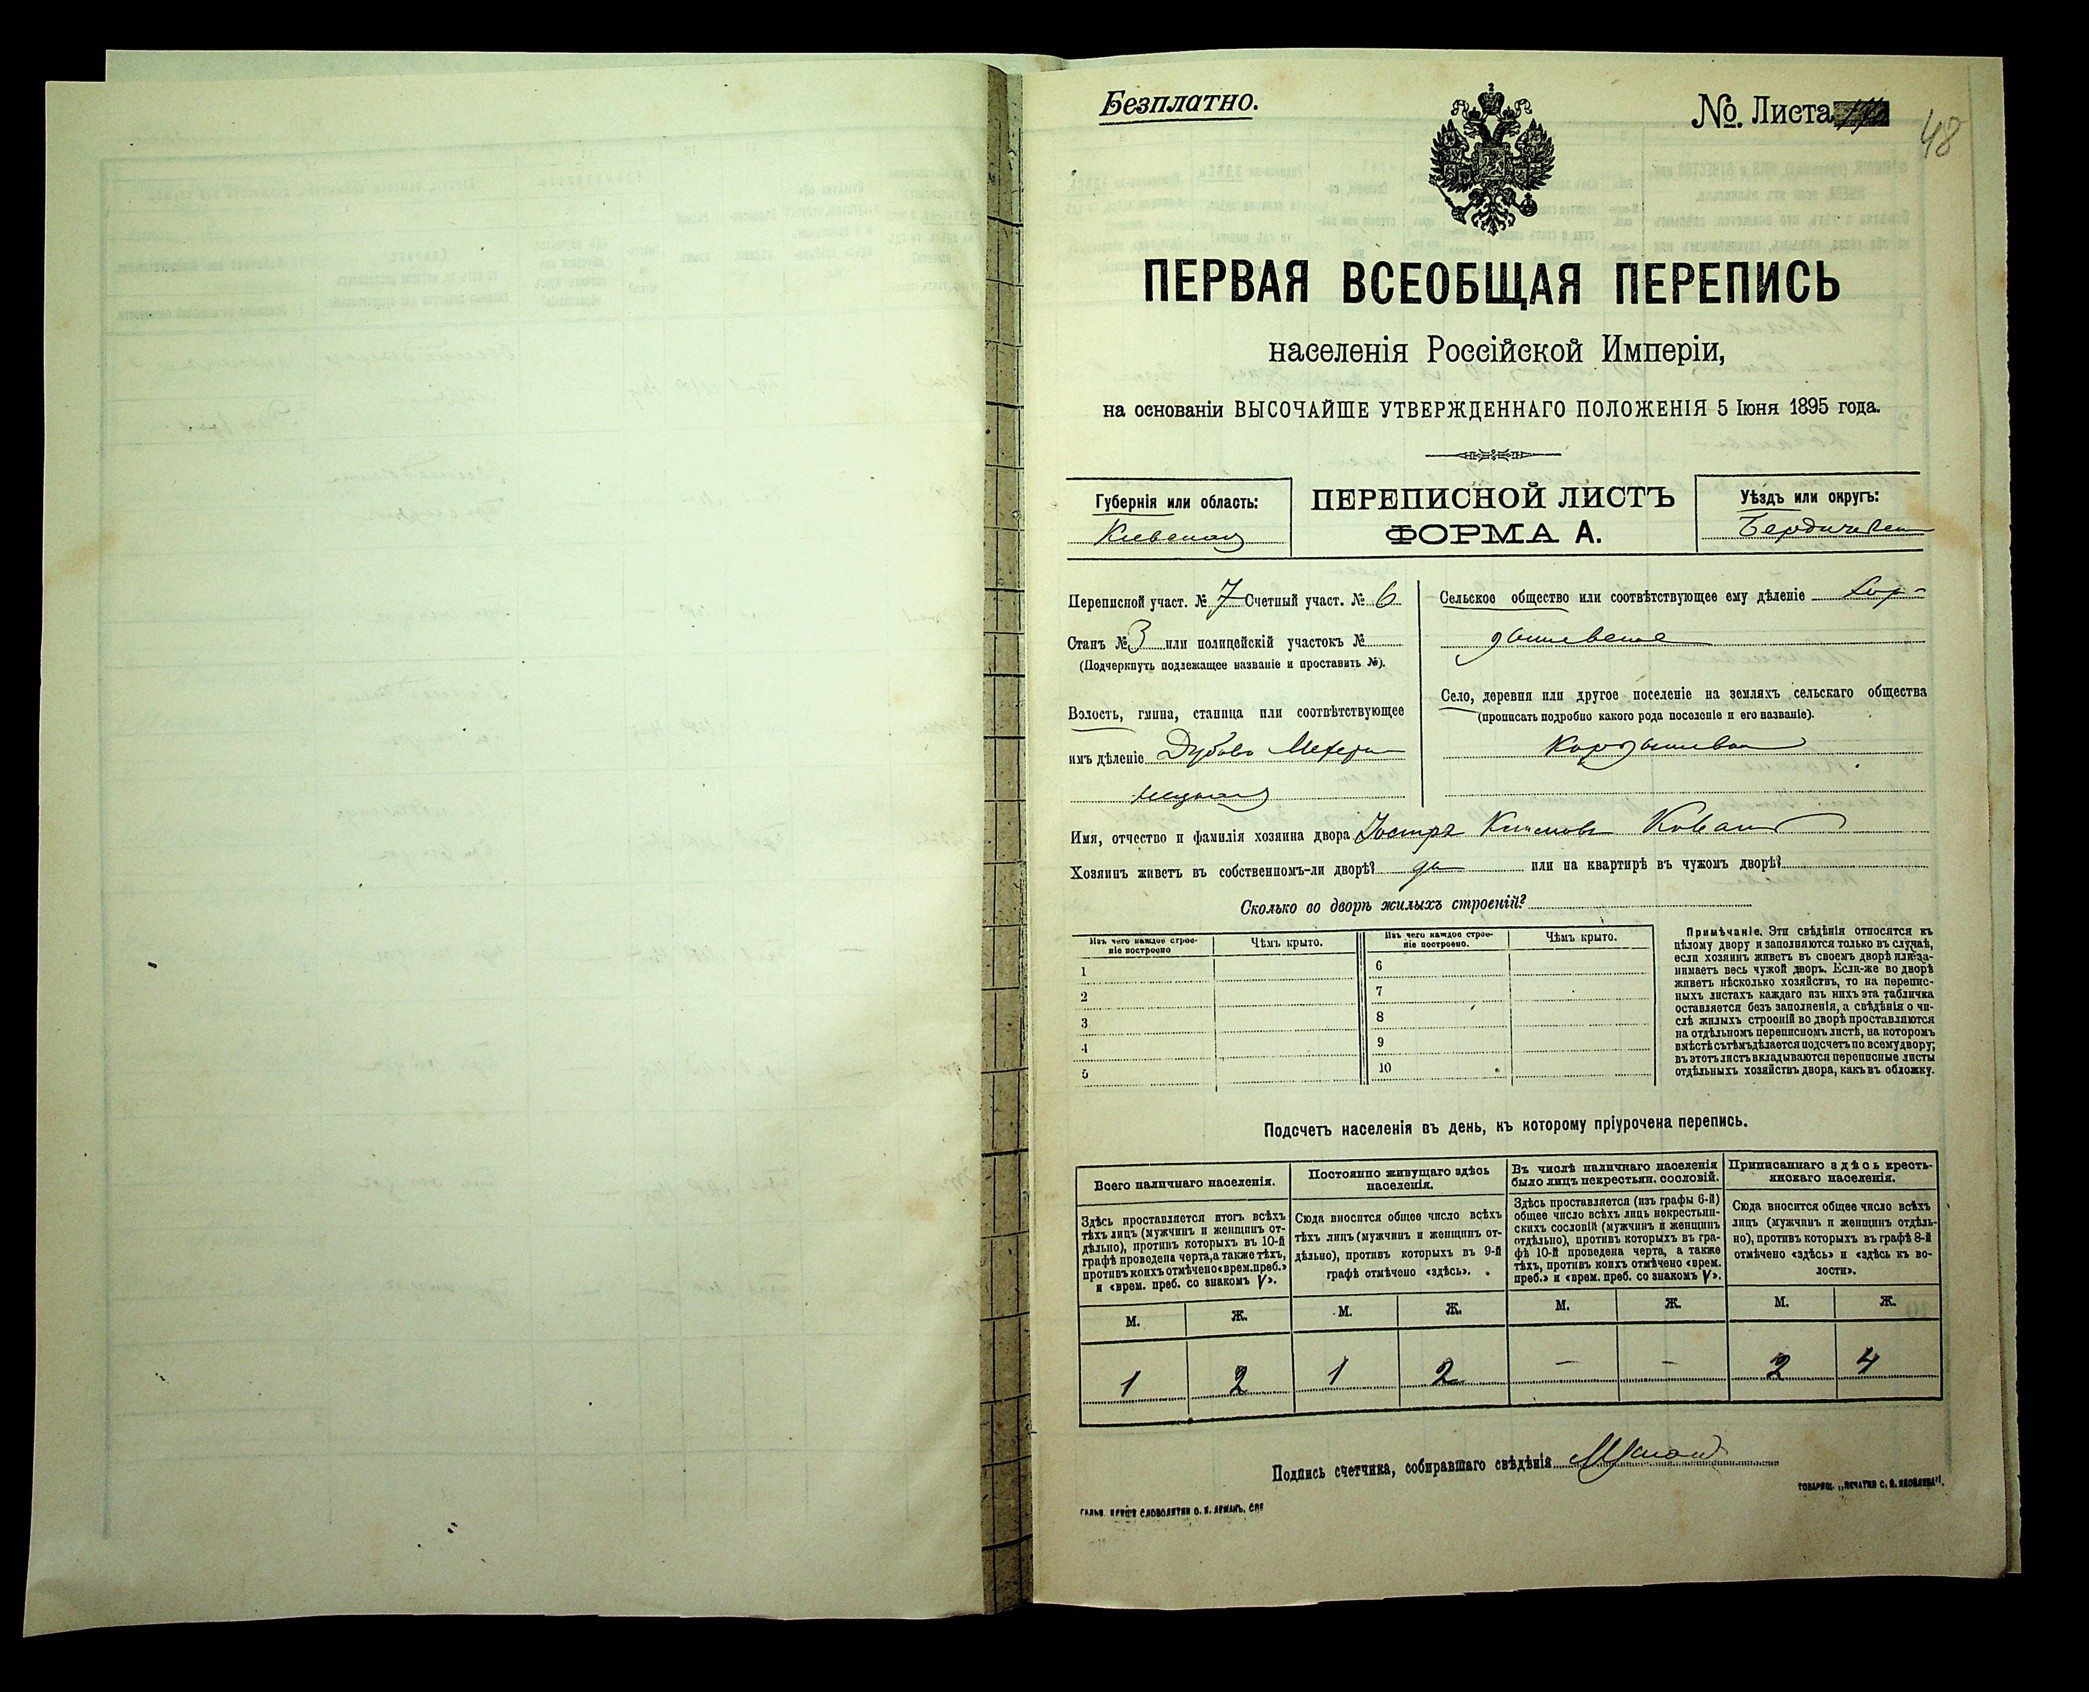 Безплатно.
№. Листа
48
ПЕРВАЯ ВСЕОБЩАЯ ПЕРЕПИСЬ
населенія Россійской Имперіи,
на основаніи ВЫСОЧАЙШЕ УТВЕРЖДЕННАГО ПОЛОЖЕНІЯ 5 Іюня 1895 года.
Губернія или область:
Кіевская
ПЕРЕПИСНОЙ ЛИСТЪ
ФОРМА А.
Уѣздъ или округъ:
Переписной участ. № 7 Счетный участ. № 6
Станъ № 3 или полицейскій участокъ №
(Подчеркнуть подлежащее названіе и проставить №).
Волость, гмина, станица или соотвѣтствующее
имъ дѣленіе Дубово
Сельское общество или соотвѣтствующее ему дѣленіе
Село, деревня или другое поселеніе на земляхъ сельскаго общества
(прописать подробно какого рода поселеніе и его названіе).
Имя, отчество и фамилія хозяина двора
Хозяинъ живетъ въ собственномъ-ли дворѣ? да или на квартирѣ въ чужомъ дворѣ?
Сколько во дворѣ жилыхъ строеній?
Изъ чего каждое строе-
ніе построено
Чѣмъ крыто.
Изъ чего каждое строе-
ніе построено.
Чѣмъ крыто.
1
2
3
4
5
6
7
8
9
10
Примѣчаніе. Эти свѣдѣнія относятся къ
цѣлому двору и заполняются только въ случаѣ,
если хозяинъ живетъ въ своемъ дворѣ или за-
нимаетъ весь чужой дворъ. Если-же во дворѣ
живетъ нѣсколько хозяйствъ, то на перепис-
ныхъ листахъ каждаго изъ нихъ эта табличка
оставляется безъ заполненія, а свѣдѣнія о чи-
слѣ жилыхъ строеній во дворѣ проставляются
на отдѣльномъ переписномъ листѣ, на которомъ
вмѣстѣ съ тѣмъ дѣлается подсчетъ по всему двору;
въ этотъ листъ вкладываются переписные листы
отдѣльныхъ хозяйствъ двора, какъ въ обложку.
Подсчетъ населенія въ день, къ которому пріурочена перепись.
Всего наличнаго населенія.
Здѣсь проставляется итогъ всѣхъ
тѣхъ лицъ (мужчинъ и женщинъ от-
дѣльно), противъ которыхъ въ 10-й
графѣ проведена черта, а также тѣхъ,
противъ коихъ отмѣчено «врем. преб.»
и «врем. преб. со знакомъ V».
Постоянно живущаго здѣсь
населенія.
Сюда вносится общее число всѣхъ
тѣхъ лицъ (мужчинъ и женщинъ от-
дѣльно), противъ которыхъ въ 9-й
графѣ отмѣчено «здѣсь».
Въ числѣ наличнаго населенія
было лицъ некрестьян. сословій.
Здѣсь проставляется (изъ графы 6-й)
общее число всѣхъ лицъ некрестьян-
скихъ сословій (мужчинъ и женщинъ
отдѣльно), противъ которыхъ въ гра-
фѣ 10-й проведена черта, а также
тѣхъ, противъ коихъ отмѣчено «врем.
преб.» и «врем. преб. со знакомъ V».
Приписаннаго здѣсь кресть-
янскаго населенія.
Сюда вносится общее число всѣхъ
лицъ (мужчинъ и женщинъ отдѣль-
но), противъ которыхъ въ графѣ 8-й
отмѣчено «здѣсь» и «здѣсь къ во-
лости».
М. Ж. М. Ж. М. Ж. М. Ж.
1 2 1 2 – – 2 4
Подпись счетчика, собиравшаго свѣдѣнія
ТОВАРИЩ. „ПЕЧАТНЯ С. П. ЯКОВЛЕВА“.